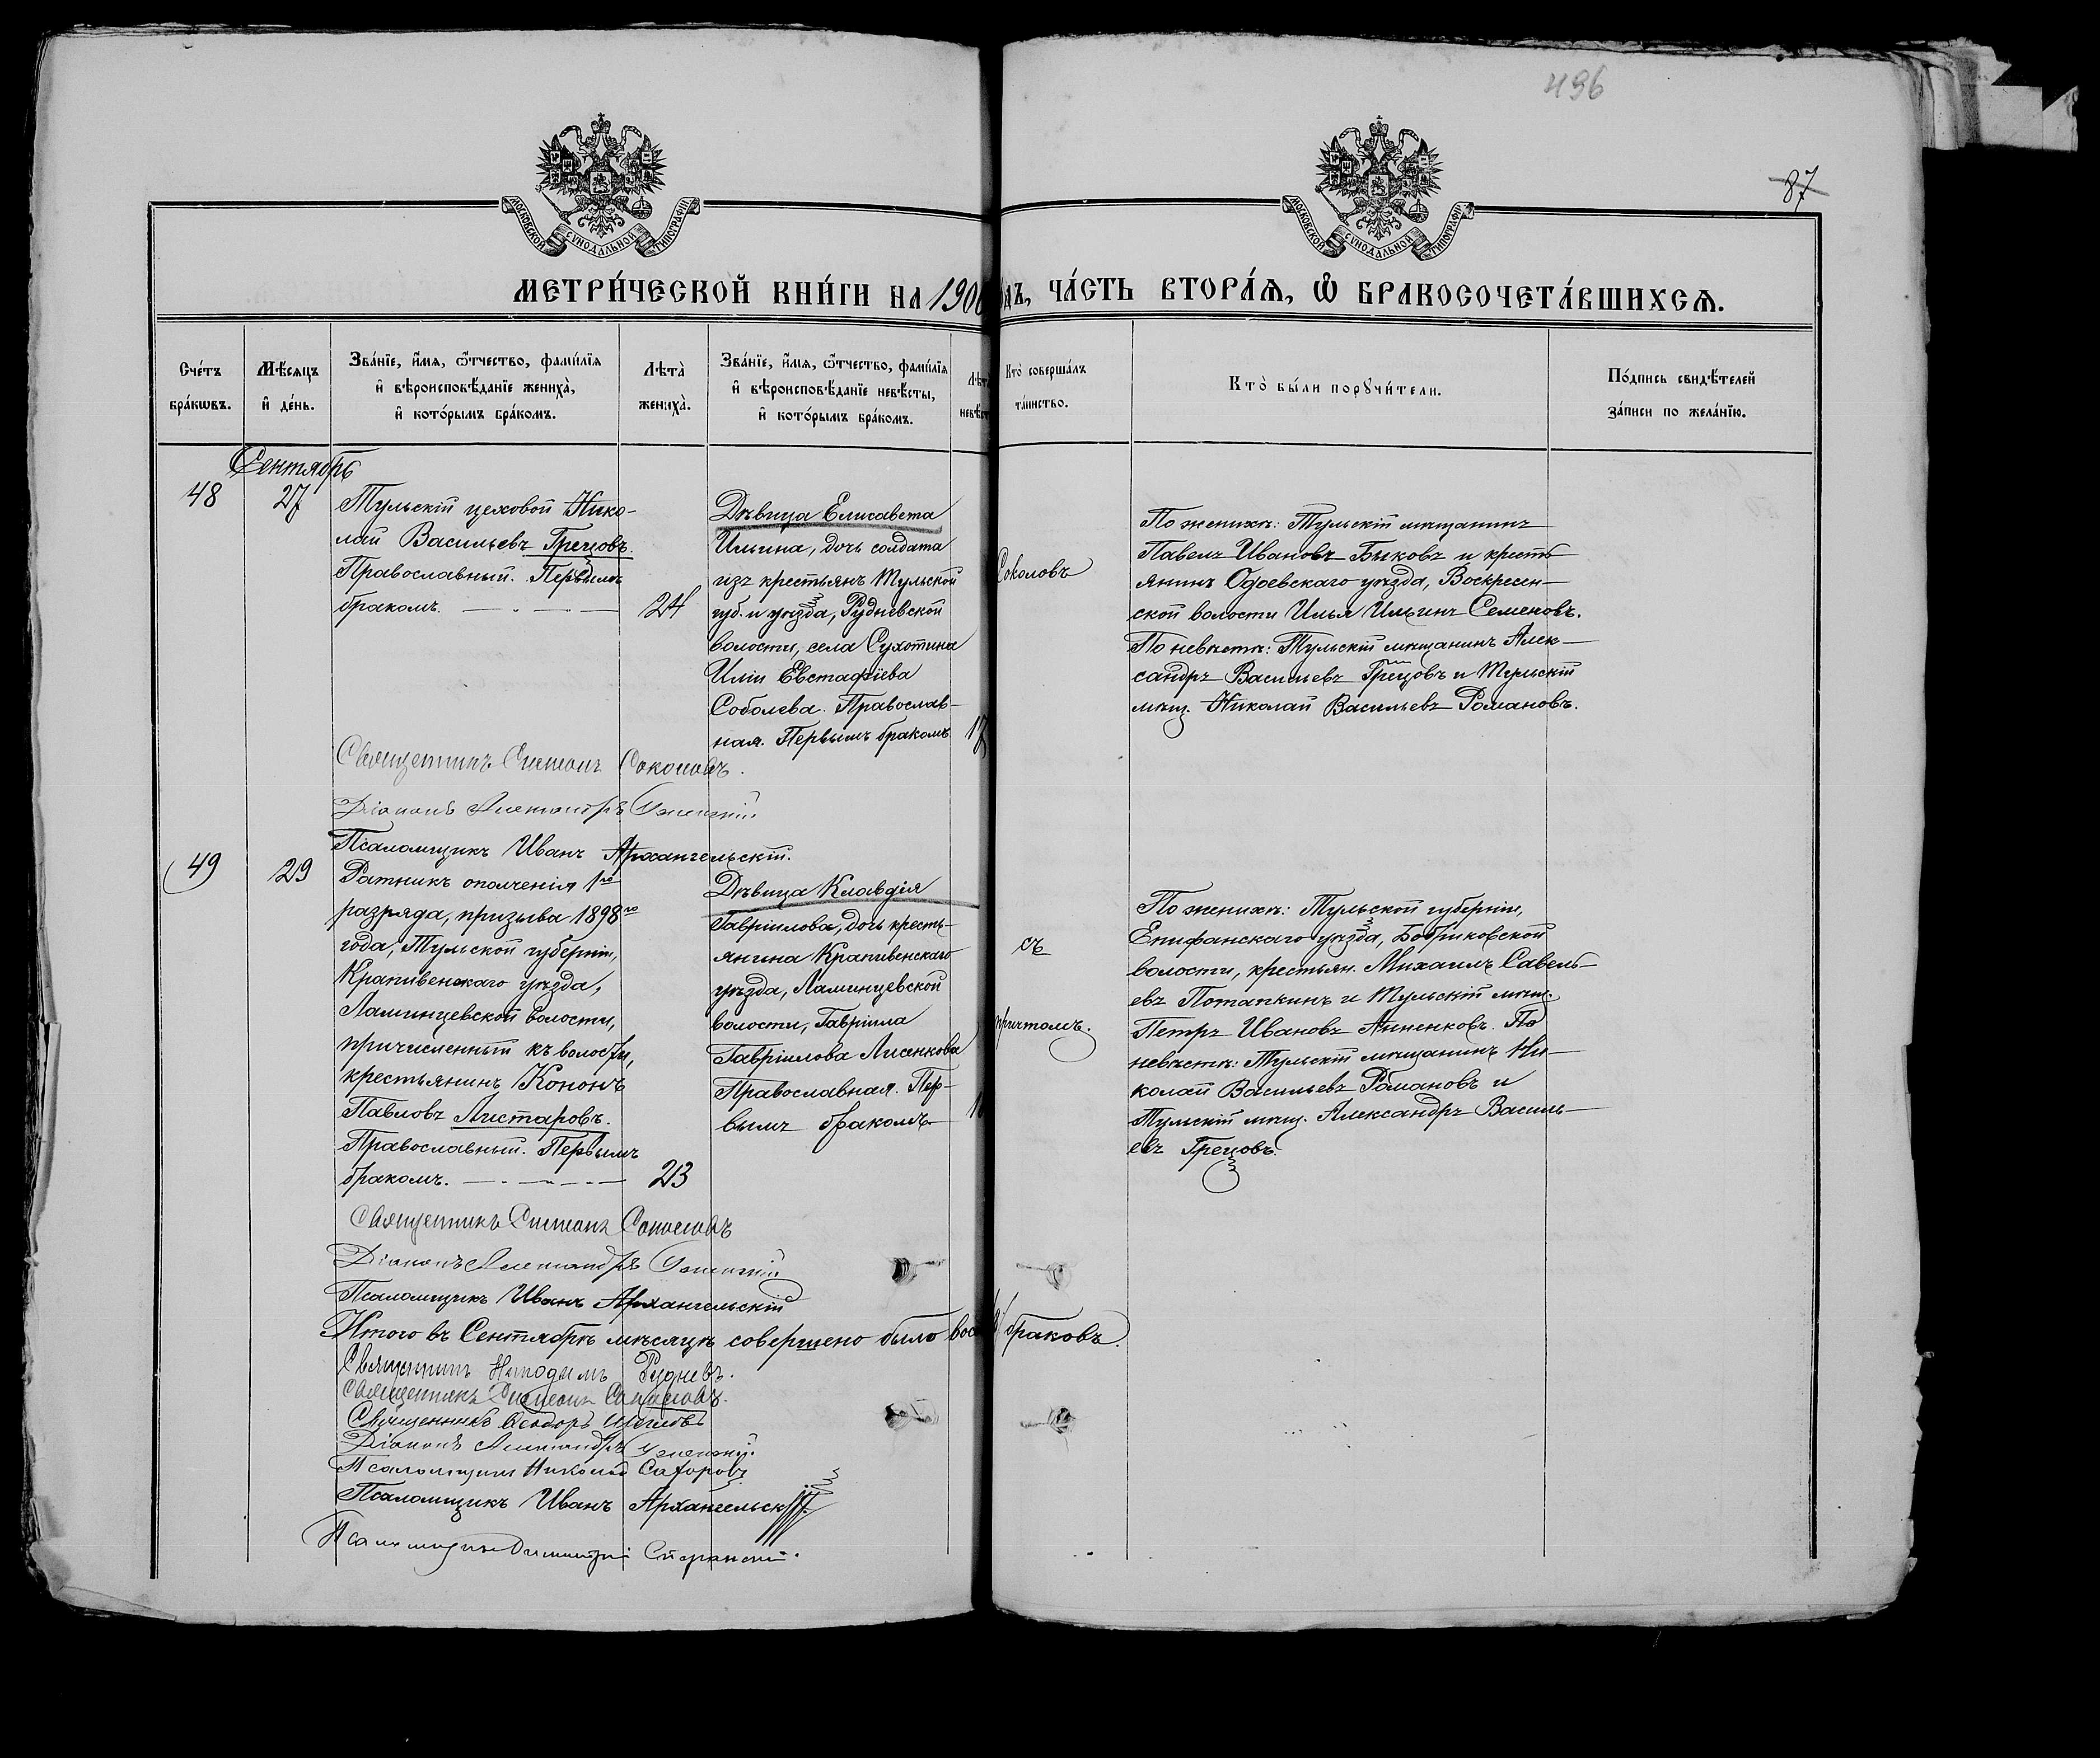 496
87
МОСКОВСКОЙ СУНОДАЛЬНОЙ ТИПОГРАФІИ
МОСКОВСКОЙ СУНОДАЛЬНОЙ ТИПОГРАФІИ
МЕТРИ́ЧЕСКОЙ КНИ́ГИ НА 1900
ДЪ, ЧА́СТЬ ВТОРА́Ѧ, Ѿ БРАКОСОЧЕТА́ВШИХСѦ.
Сче́тъ бра́кѡвъ.
Мѣ́сяцъ и҆ де́нь.
Зва́нїе, и҆́мѧ, ѻ҆́тчество, фами́лїѧ
и҆ вѣроисповѣ́данїе жениха̀,
и҆ кото́рымъ бра́комъ.
Лѣта̀ жениха̀.
Зва́нїе, и҆́мѧ, ѻ҆́тчество, фами́лїѧ
и҆ вѣроисповѣ́данїе невѣ́сты,
и҆ кото́рымъ бра́комъ.
Лѣт
невѣст
Кто̀ соверша́лъ та́инство.
Кто̀ бы́ли порꙋчи́тели.
По́дпись свидѣ́телей
за́писи по жела́нїю.
Сентябрь
48
27
Тульскій цеховой Нико-
лай Васильевъ Грецовъ.
Православный. Первымъ
бракомъ.
24
Дѣвица Елисавета
Ильина, дочь солдата
изъ крестьянъ Тульской
губ. и уѣзда, Рудневской
волости, села Сухотина
Иліи Евстафіева
Соболева. Православ-
ная. Первымъ бракомъ
17
Соколовъ
По женихѣ: Тульскій мѣщанинъ
Павелъ Ивановъ Быковъ и кресть-
янинъ Одоевскаго уѣзда, Воскресен-
ской волости Илья Ильинъ Семеновъ.
По невѣстѣ: Тульскій мѣщанинъ Алек-
сандръ Васильевъ Грецовъ и Тульскій
мѣщ. Николай Васильевъ Романовъ.
Священникъ Симеонъ Соколовъ.
Діаконъ Александръ Успенскій
Псаломщикъ Иванъ Архангельскій.
49
29
Ратникъ ополченія 1го
разряда, призыва 1898го
года, Тульской губерніи,
Крапивенскаго уѣзда,
Ламинцевской волости,
причисленный къ волости,
крестьянинъ Кононъ
Павловъ Листаровъ.
Православный. Первымъ
бракомъ.
23
Дѣвица Клавдія
Гавріилова, дочь кресть-
янина Крапивенскаго
уѣзда, Ламинцевской
волости, Гавріила
Гавріилова Лисенкова
Православная. Пер-
вымъ бракомъ
съ
причтомъ.
По женихѣ: Тульской губерніи,
Епифанскаго уѣзда, Бобриковской
волости, крестьян. Михаилъ Савель-
евъ Потапкинъ и Тульскій мѣщ.
Петръ Ивановъ Анненковъ. По
невѣстѣ: Тульскій мѣщанинъ Ни-
колай Васильевъ Романовъ и
Тульскій мѣщ. Александръ Василь-
евъ Грецовъ.
Священникъ Симеонъ Соколовъ
Діаконъ Александръ Успенскій
Псаломщикъ Иванъ Архангельскій
Итого въ Сентябрѣ мѣсяцѣ совершено было вос браковъ.
Священникъ Никодимъ Рудневъ.
Священникъ Симеонъ Соколовъ.
Священникъ Ѳеодоръ
Діаконъ Александръ Успенскій.
Псаломщикъ Николай
Псаломщикъ Иванъ Архангельскій.
Псаломщикъ Димитрій Сперанскій.